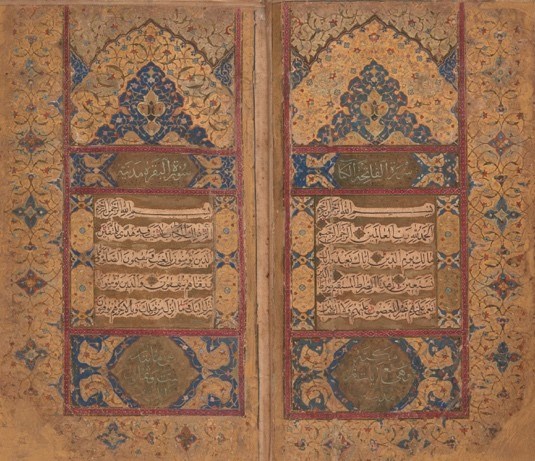 سورة الفاتحة الكتاب
بسم الله الرحمن الرحيم
الحمد لله رب العالمين الرحمن الرحيم
مالك يوم الدين اياك نعبد واياك
نستعين اهدنا الصراط المستقيم صراط الذين
انعمت عليهم غير المغضوب عليهم ولا الضالين
سورة البقرة مدنية
بسم الله الرحمن الرحيم
الم ذلك الكتاب لا ريب فيه هدى للمتقين
الذين يؤمنون بالغيب ويقيمون الصلوة
ومما رزقناهم ينفقون والذين يؤمنون بما
انزل اليك وما انزل من قبلك وبالاخرة هم